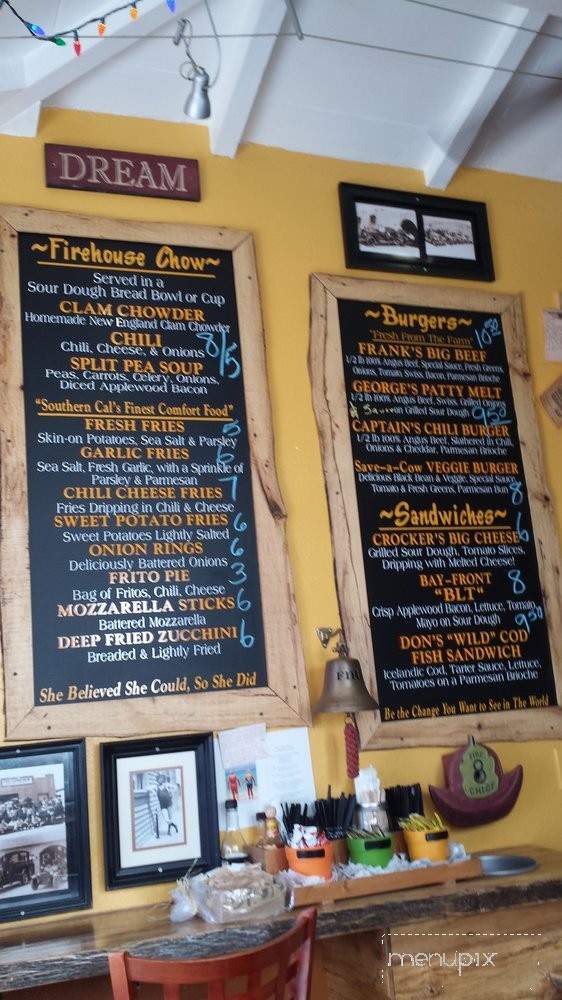 DREAM
~Firehouse Chow~
Served in a
Sour Dough Bread Bowl or Cup
CLAM CHOWDER
Homemade New England Clam Chowder
CHILI
Chili, Cheese, & Onions
8/5
SPLIT PEA SOUP
Peas, Carrots, Celery, Onions,
Diced Applewood Bacon
"Southern Cal's Finest Comfort Food"
FRESH FRIES 5
Skin-on Potatoes, Sea Salt & Parsley
GARLIC FRIES 6
Sea Salt, Fresh Garlic, with a Sprinkle of
Parsley & Parmesan
CHILI CHEESE FRIES 7
Fries Dripping in Chili & Cheese
SWEET POTATO FRIES 6
Sweet Potatoes Lightly Salted
ONION RINGS 6
Deliciously Battered Onions
FRITO PIE 3
Bag of Fritos, Chili, Cheese
MOZZARELLA STICKS 6
Battered Mozzarella
DEEP FRIED ZUCCHINI 6
Breaded & Lightly Fried
She Believed She Could, So She Did
~Burgers~
"Fresh From The Farm" 10.50
FRANK'S BIG BEEF
1/2 lb 100% Angus Beef, Special Sauce, Fresh Greens,
Onions, Tomato, Swiss, Bacon, Parmesan Brioche
GEORGE'S PATTY MELT
1/2 lb 100% Angus Beef, Swiss, Grilled Onions
Grilled Sour Dough 9.50
CAPTAIN'S CHILI BURGER
1/2 lb 100% Angus Beef, Slathered in Chili,
Onions & Cheddar, Parmesan Brioche
Save-a-Cow VEGGIE BURGER
Delicious Black Bean & Veggie, Special Sauce,
Tomato & Fresh Greens, Parmesan Bun 8
~Sandwiches~
CROCKER'S BIG CHEESE 6
Grilled Sour Dough, Tomato Slices,
Dripping with Melted Cheese!
BAY-FRONT
"BLT" 8
Crisp Applewood Bacon, Lettuce, Tomato,
Mayo on Sour Dough
9.50
DON'S "WILD" COD
FISH SANDWICH
Icelandic Cod, Tarter Sauce, Lettuce,
Tomatoes on a Parmesan Brioche
Be the Change You Want to See in The World
FIRE
8
CHIEF
menupix